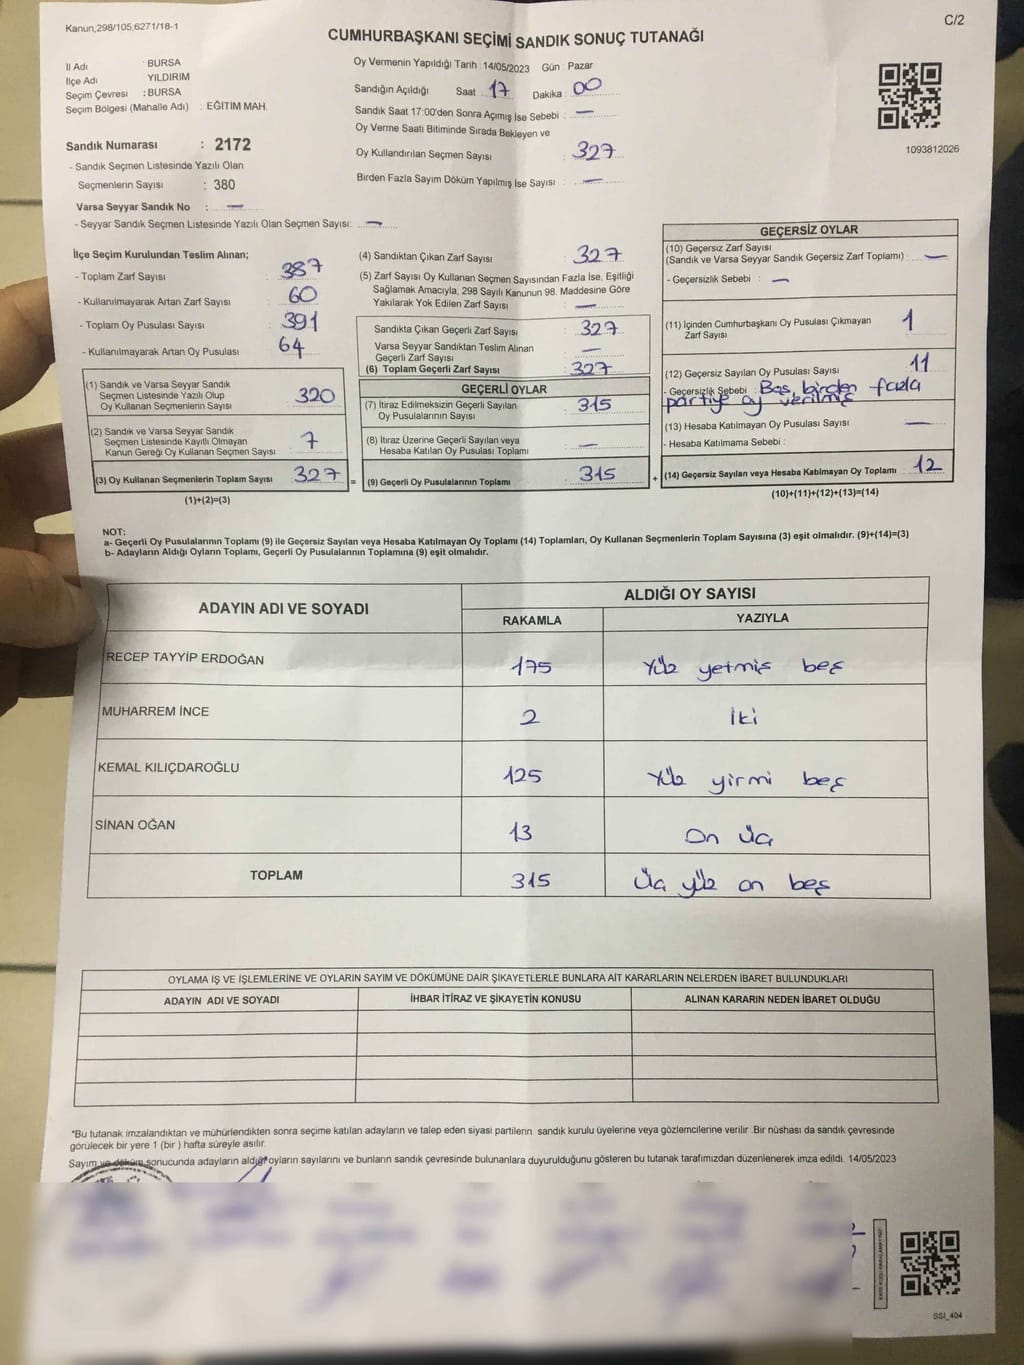 Kanun,298/105;6271/18-1
C/2
CUMHURBAŞKANI SEÇİMİ SANDIK SONUÇ TUTANAĞI
İl Adı : BURSA
İlçe Adı YILDIRIM
Seçim Çevresi : BURSA
Seçim Bölgesi (Mahalle Adı) : EĞİTİM MAH.
Sandık Numarası : 2172
- Sandık Seçmen Listesinde Yazılı Olan
Seçmenlerin Sayısı : 380
Varsa Seyyar Sandık No : —
- Seyyar Sandık Seçmen Listesinde Yazılı Olan Seçmen Sayısı: —
Oy Vermenin Yapıldığı Tarih : 14/05/2023 Gün : Pazar
Sandığın Açıldığı Saat : 17 Dakika : 00
Sandık Saat 17:00'den Sonra Açımış İse Sebebi : —
Oy Verme Saati Bitiminde Sırada Bekleyen ve
Oy Kullandırılan Seçmen Sayısı : 327
Birden Fazla Sayım Döküm Yapılmış İse Sayısı : —
1093812026
İlçe Seçim Kurulundan Teslim Alınan;
- Toplam Zarf Sayısı : 387
- Kullanılmayarak Artan Zarf Sayısı : 60
- Toplam Oy Pusulası Sayısı : 391
- Kullanılmayarak Artan Oy Pusulası : 64
(1) Sandık ve Varsa Seyyar Sandık
Seçmen Listesinde Yazılı Olup
Oy Kullanan Seçmenlerin Sayısı : 320
(2) Sandık ve Varsa Seyyar Sandık
Seçmen Listesinde Kayıtlı Olmayan
Kanun Gereği Oy Kullanan Seçmen Sayısı : 7
(3) Oy Kullanan Seçmenlerin Toplam Sayısı : 327 =
(1)+(2)=(3)
(4) Sandıktan Çıkan Zarf Sayısı : 327
(5) Zarf Sayısı Oy Kullanan Seçmen Sayısından Fazla İse, Eşitliği
Sağlamak Amacıyla, 298 Sayılı Kanunun 98. Maddesine Göre
Yakılarak Yok Edilen Zarf Sayısı : —
Sandıkta Çıkan Geçerli Zarf Sayısı : 327
Varsa Seyyar Sandıktan Teslim Alınan
Geçerli Zarf Sayısı : —
(6) Toplam Geçerli Zarf Sayısı : 327
GEÇERLİ OYLAR
(7) İtiraz Edilmeksizin Geçerli Sayılan
Oy Pusulalarının Sayısı : 315
(8) İtiraz Üzerine Geçerli Sayılan veya
Hesaba Katılan Oy Pusulası Toplamı : —
(9) Geçerli Oy Pusulalarının Toplamı : 315 +
GEÇERSİZ OYLAR
(10) Geçersiz Zarf Sayısı
(Sandık ve Varsa Seyyar Sandık Geçersiz Zarf Toplamı) : —
- Geçersizlik Sebebi : —
(11) İçinden Cumhurbaşkanı Oy Pusulası Çıkmayan
Zarf Sayısı : 1
(12) Geçersiz Sayılan Oy Pusulası Sayısı : 11
- Geçersizlik Sebebi : Boş, birden fazla
partiye oy verilmiş
(13) Hesaba Katılmayan Oy Pusulası Sayısı : —
- Hesaba Katılmama Sebebi :
(14) Geçersiz Sayılan veya Hesaba Katılmayan Oy Toplamı : 12
(10)+(11)+(12)+(13)=(14)
NOT:
a- Geçerli Oy Pusulalarının Toplamı (9) ile Geçersiz Sayılan veya Hesaba Katılmayan Oy Toplamı (14) Toplamları, Oy Kullanan Seçmenlerin Toplam Sayısına (3) eşit olmalıdır. (9)+(14)=(3)
b- Adayların Aldığı Oyların Toplamı, Geçerli Oy Pusulalarının Toplamına (9) eşit olmalıdır.
ADAYIN ADI VE SOYADI ALDIĞI OY SAYISI
RAKAMLA YAZIYLA
RECEP TAYYİP ERDOĞAN 175 Yüz yetmiş beş
MUHARREM İNCE 2 İki
KEMAL KILIÇDAROĞLU 125 Yüz yirmi beş
SİNAN OĞAN 13 On üç
TOPLAM 315 Üç yüz on beş
OYLAMA İŞ VE İŞLEMLERİNE VE OYLARIN SAYIM VE DÖKÜMÜNE DAİR ŞİKAYETLERLE BUNLARA AİT KARARLARIN NELERDEN İBARET BULUNDUKLARI
ADAYIN ADI VE SOYADI İHBAR İTİRAZ VE ŞİKAYETİN KONUSU ALINAN KARARIN NEDEN İBARET OLDUĞU
*Bu tutanak imzalandıktan ve mühürlendikten sonra seçime katılan adayların ve talep eden siyasi partilerin sandık kurulu üyelerine veya gözlemcilerine verilir. Bir nüshası da sandık çevresinde
görülecek bir yere 1 (bir ) hafta süreyle asılır.
Sayım ve döküm sonucunda adayların aldığı oyların sayılarını ve bunların sandık çevresinde bulunanlara duyurulduğunu gösteren bu tutanak tarafımızdan düzenlenerek imza edildi. 14/05/2023
SSI_404